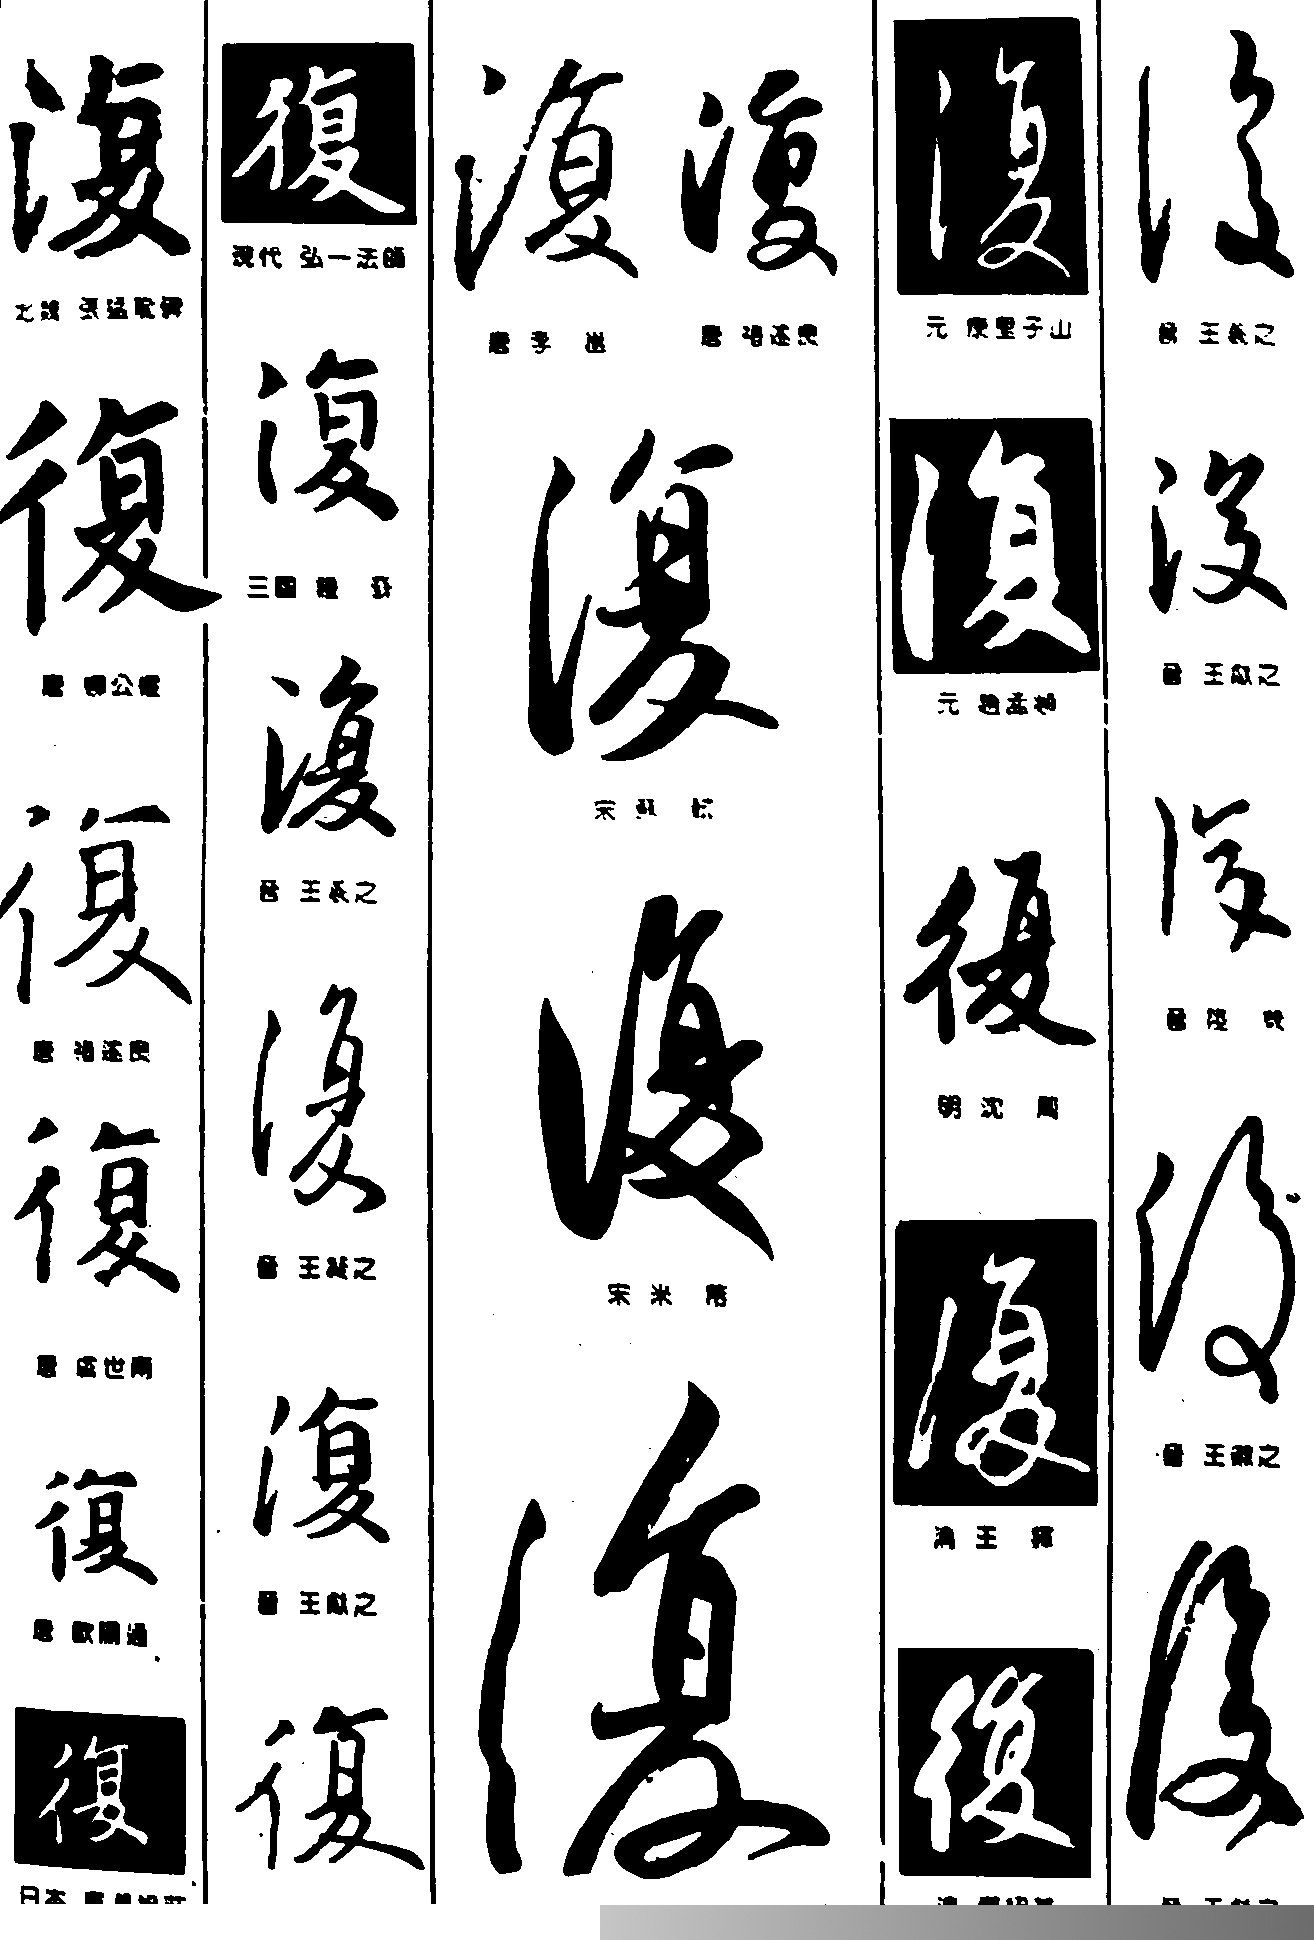 復
北魏 張猛龍碑
復
唐 柳公權
復
唐 褚遂良
復
唐 虞世南
復
唐 歐陽通
復
日本
復
現代 弘一法師
復
三國 鍾 繇
復
晉 王羲之
復
晉 王凝之
復
晉 王獻之
復
復
唐 李 邕
復
唐 褚遂良
復
宋 蘇 軾
復
宋 米 芾
復
復
元 康里子山
復
元 趙孟頫
復
明 沈 周
復
清 王 鐸
復
清
復
晉 王羲之
復
晉 王獻之
復
晉 陸 機
復
晉 王徽之
復
晉 王獻之